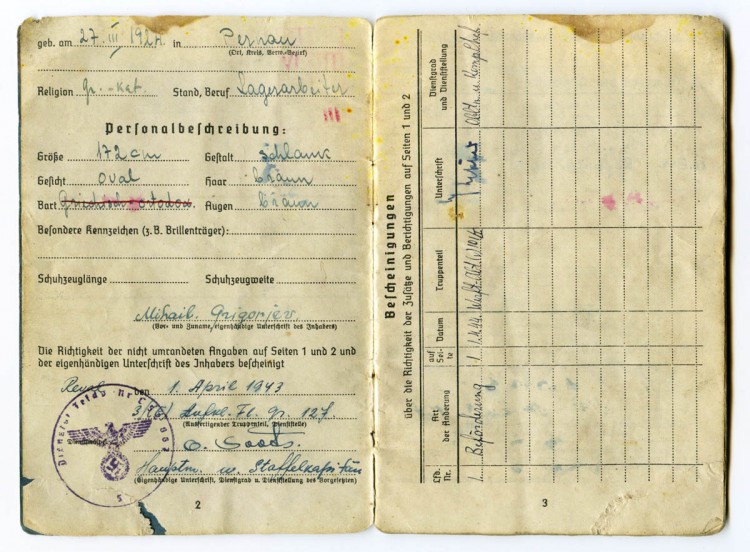 geb. am 27. III 1924. in Pernau
(Ort, Kreis, Verw.-Bezirk)
Religion gr.-kat. Stand, Beruf Lagerarbeiter
III
Personalbeschreibung:
Größe 172 cm Gestalt schlank
Gesicht oval Haar braun
Bart Augen braun
Besondere Kennzeichen (z. B. Brillenträger):
Schuhzeuglänge Schuhzeugweite
Mihail. Grigorjev.
(Vor- und Zuname, eigenhändige Unterschrift des Inhabers)
Die Richtigkeit der nicht umrandeten Angaben auf Seiten 1 und 2 und
der eigenhändigen Unterschrift des Inhabers bescheinigt
Reval den 1. April 1943
Aufkl. Fl. Gr. 127
(Ausfertigender Truppenteil, Dienststelle)
Hauptm. u. Staffelkapitän
(Eigenhändige Unterschrift, Dienstgrad u. Dienststellung des Vorgesetzten)
Dienststelle Feldp. Nr.
2
Bescheinigungen
über die Richtigkeit der Zusätze und Berichtigungen auf Seiten 1 und 2
Lfd. Nr.
Art der Änderung
auf Seite
Datum
Truppenteil
Unterschrift
Dienstgrad und Dienststellung
1. Beförderung 1 1.4.44.
3